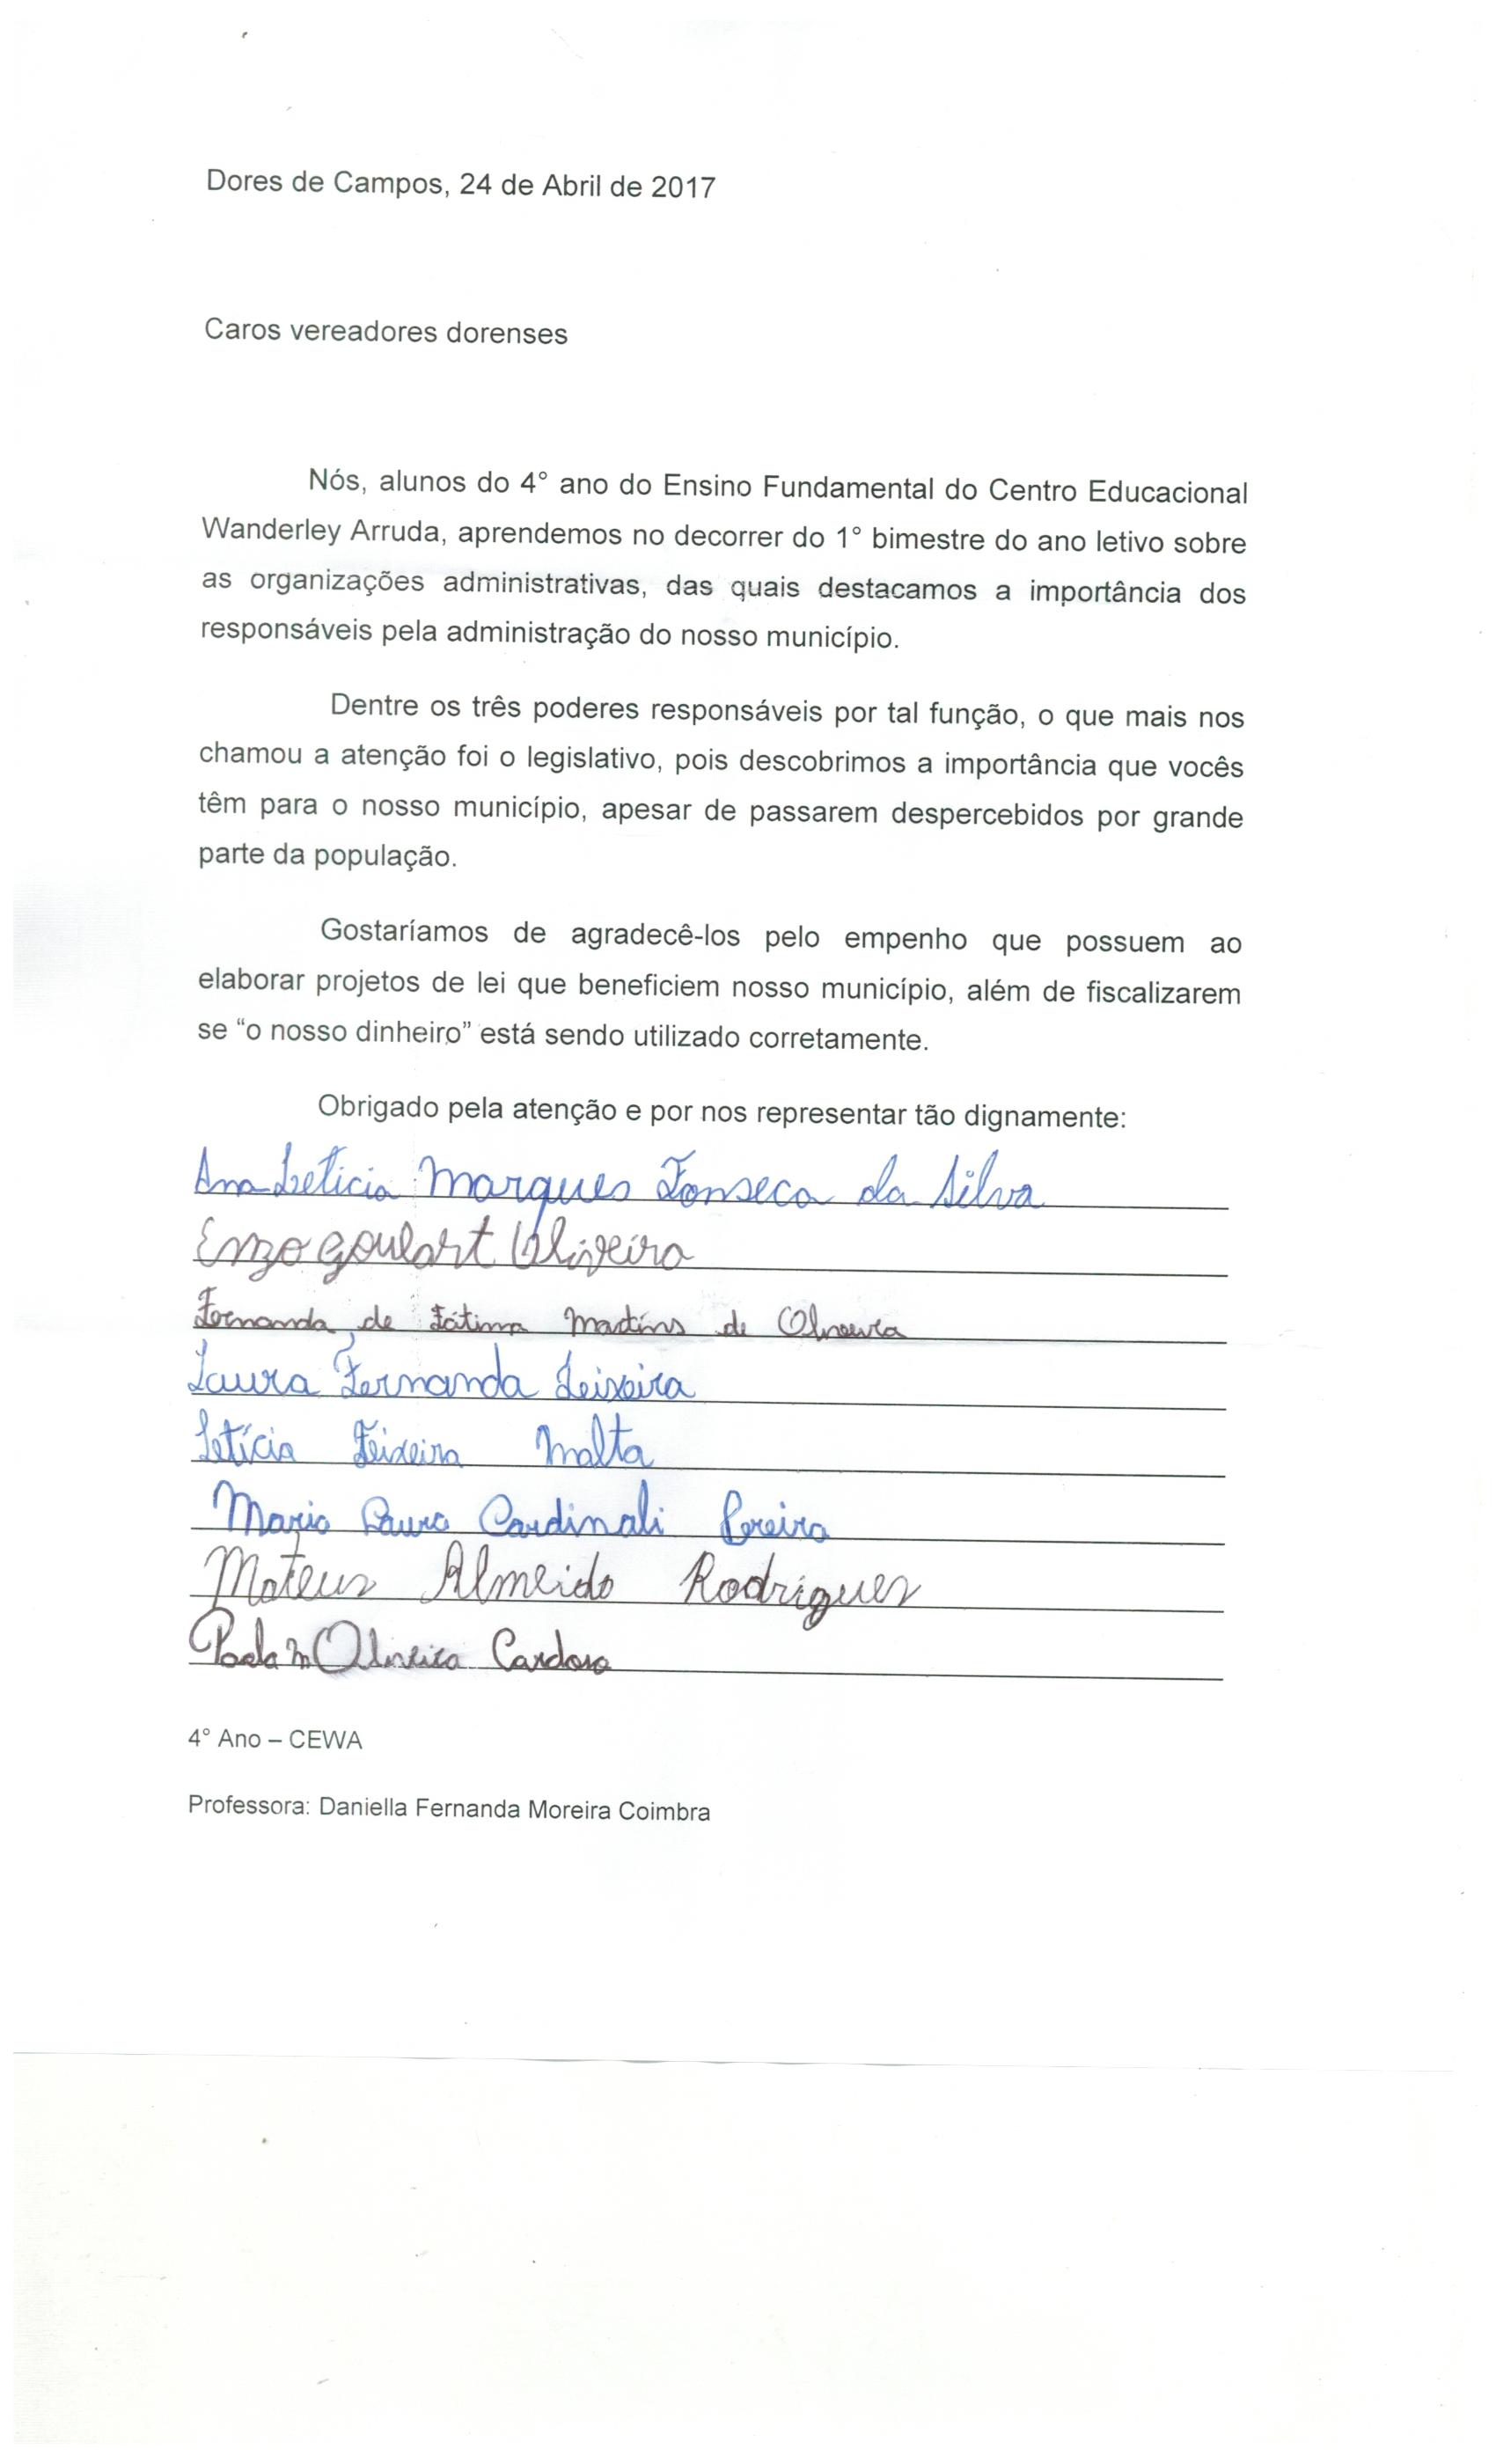 Dores de Campos, 24 de Abril de 2017
Caros vereadores dorenses
Nós, alunos do 4° ano do Ensino Fundamental do Centro Educacional
Wanderley Arruda, aprendemos no decorrer do 1° bimestre do ano letivo sobre
as organizações administrativas, das quais destacamos a importância dos
responsáveis pela administração do nosso município.
Dentre os três poderes responsáveis por tal função, o que mais nos
chamou a atenção foi o legislativo, pois descobrimos a importância que vocês
têm para o nosso município, apesar de passarem despercebidos por grande
parte da população.
Gostaríamos de agradecê-los pelo empenho que possuem ao
elaborar projetos de lei que beneficiem nosso município, além de fiscalizarem
se “o nosso dinheiro” está sendo utilizado corretamente.
Obrigado pela atenção e por nos representar tão dignamente:
Ana Leticia Marques Fonseca da Silva
Enzo Goulart Oliveira
Fernanda de Fátima Martins de Oliveira
Laura Fernanda Teixeira
Letícia Teixeira Malta
Maria Laura Cardinali Pereira
Mateus Almeida Rodrigues
M Oliveira Cardoso
4° Ano – CEWA
Professora: Daniella Fernanda Moreira Coimbra